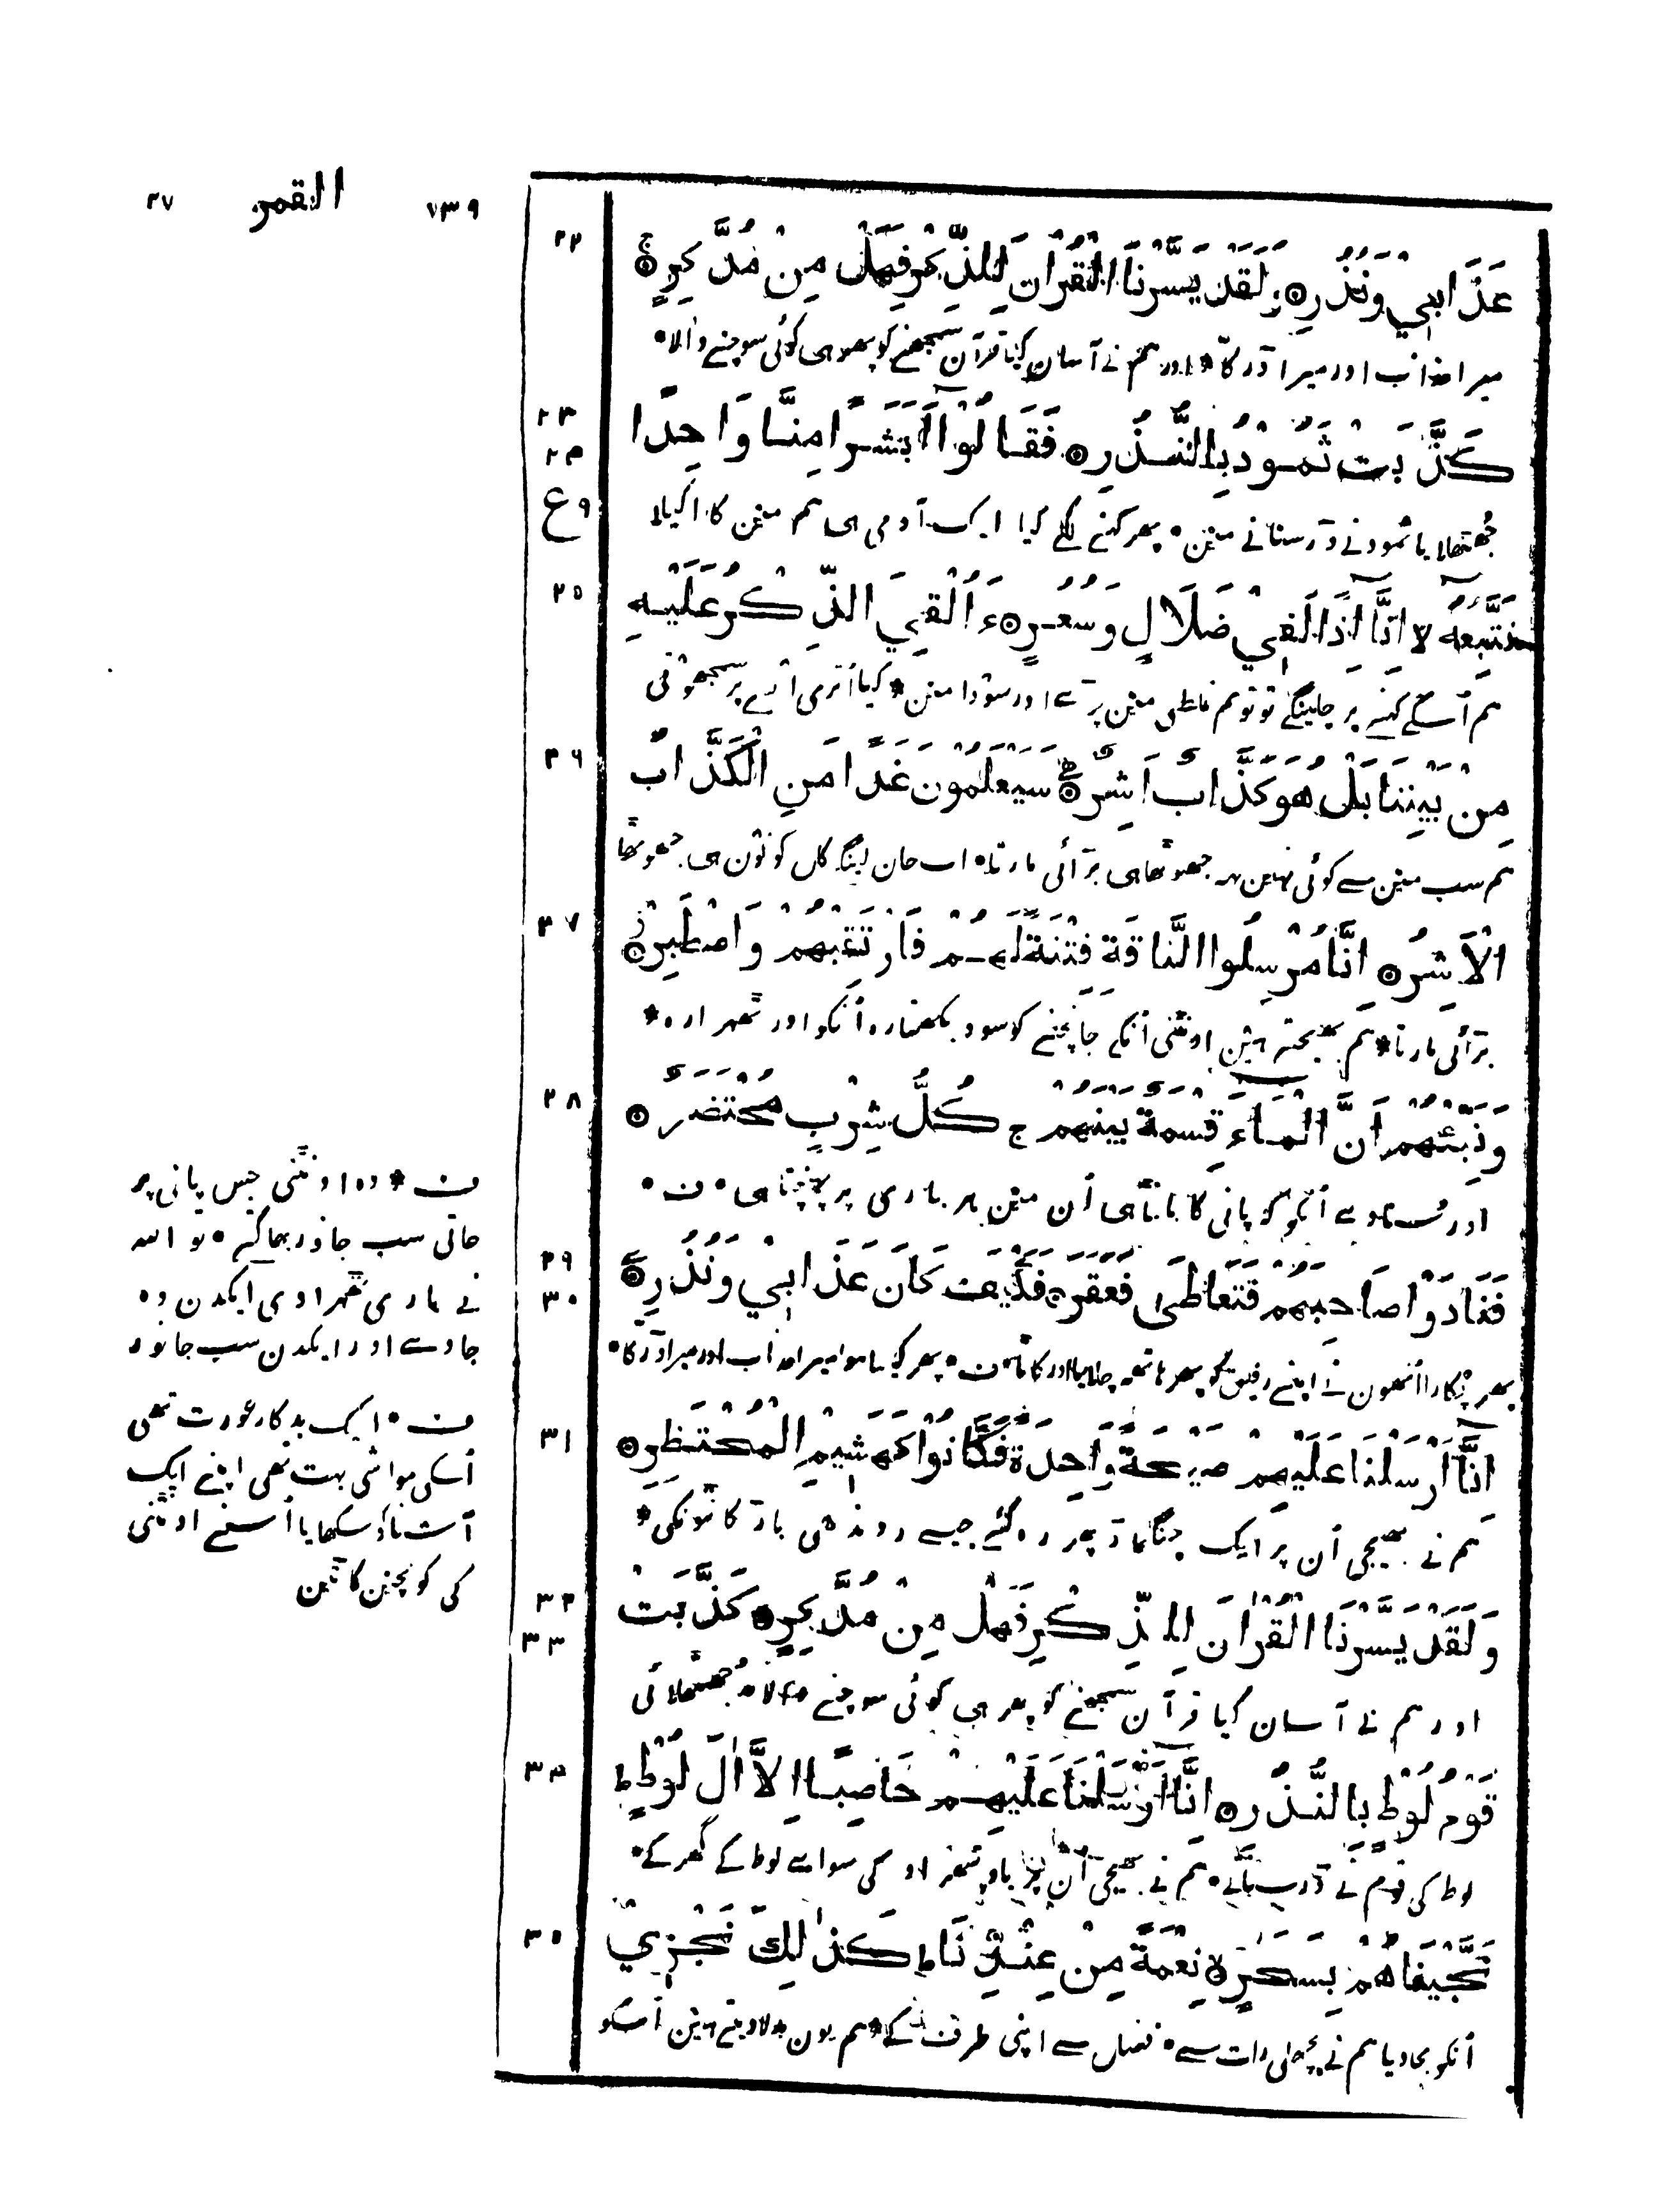 ۷۳۹ القمر ۲۷
۲۲
عَذَابِيْ وَنُذُرِ ۝ وَلَقَدْ يَسَّرْنَا الْقُرْاٰنَ لِلذِّكْرِ فَهَلْ مِنْ مُّدَّكِرٍ ۝
میرا عذاب اور میرا ڈر کا * اور ہم نے آسان کیا قرآن سمجھنے کو پھر ہی کوئی سوچنے والا •
۲۳
۲۴
ع ۹
كَذَّبَتْ ثَمُوْدُ بِالنُّذُرِ ۝ فَقَالُوْٓا اَبَشَرًا مِنَّا وَاحِدًا
جُھٹھلایا ثمود نے ڈر سنانے مین • پھر کہنے لگے کیا ایک آدمی ہی ہم مین کا اکیلا
۲۵
نَتَّبِعُهٗٓ لا اِنَّآ اِذًا لَّفِيْ ضَلَالٍ وَسُعُرٍ ۝ ءَاُلْقِيَ الذِّكْرُ عَلَيْهِ
ہم اُسکے کہنے پر چلینگے تو تو ہم غلطی مین پڑے اور سودا مین * کیا اُتری اُسے پر سمجھوتی
۲۶
مِنْ بَيْنِنَا بَلْ هُوَ كَذَّابٌ اَشِرٌ ۝ سَيَعْلَمُوْنَ غَدًا مَنِ الْكَذَّابُ
ہم سب مین سے کوئی نہین یہ جھوٹھا ہی بڑائی مارتا • اب جان لینگے کل کو کون ہی جھوٹھا
۲۷
الْاَشِرُ ۝ اِنَّا مُرْسِلُوا النَّاقَةِ فِتْنَةً لَهُمْ فَارْتَقِبْهُمْ وَاصْطَبِرْ ۝
بڑائی مارتا * ہم بھیجتے ہین اونٹنی اُنکے جانچنے کو سو دیکھتا رہ اُنکو اور ٹھہرا رہ *
۲۸
وَنَبِّئْهُمْ اَنَّ الْمَآءَ قِسْمَةٌ بَيْنَهُمْ ج كُلُّ شِرْبٍ مُحْتَضَرٌ ۝
اور سنادے اُنکو کہ پانی کا بانٹا ہی اُن مین ہر باری پر پہنچتا ہی • ف •
۲۹
۳۰
فَنَادَوْا صَاحِبَهُمْ فَتَعَاطٰى فَعَقَرَ ۝ فَكَيْفَ كَانَ عَذَابِيْ وَنُذُرِ ۝
پھر پکارا اُنھون نے اپنے رفیق کو پھر ہاتھ چلایا اور کاٹا • ف • پھر کیسا ہوا میرا عذاب اور میرا ڈر کا •
۳۱
اِنَّآ اَرْسَلْنَا عَلَيْهِمْ صَيْحَةً وَّاحِدَةً فَكَانُوْا كَهَشِيْمِ الْمُحْتَظِرِ ۝
ہم نے بھیجی اُن پر ایک چنگھاڑ پھر رہ گئے جیسے روندی باڑ کانٹونکی *
۳۲
۳۳
وَلَقَدْ يَسَّرْنَا الْقُرْاٰنَ لِلذِّكْرِ فَهَلْ مِنْ مُّدَّكِرٍ ۝ كَذَّبَتْ
اور ہم نے آسان کیا قرآن سمجھنے کو پھر ہی کوئی سوچنے والا • جُھٹھلائی
۳۴
قَوْمُ لُوْطٍ بِالنُّذُرِ ۝ اِنَّآ اَرْسَلْنَا عَلَيْهِمْ حَاصِبًا اِلَّآ اٰلَ لُوْطٍ ط
لوط کی قوم نے ڈر سنانے • ہم نے بھیجی اُن پر باو پتھراو کی سواے لوط کے گھر کے •
۳۵
نَجَّيْنَاهُمْ بِسَحَرٍ ۝ لا نِعْمَةً مِنْ عِنْدِنَا ط كَذٰلِكَ نَجْزِيْ
اُنکو بچادیا ہم نے پچھلی رات سے • فضل سے اپنی طرف کے * ہم یون بدلا دیتے ہین اُسکو
ف * وہ اونٹنی جس پانی پر
جاتی سب جانور بھاگتے • تو اللہ
نے باری ٹھہرا دی ایکدن وہ
جاوے اور ایکدن سب جانور
ف • ایک بدکار عورت تھی
اُسکی مواشی بہت تھی اپنے ایک
آشنا کو سکھایا اُسنے اونٹنی
کی کونچین کاٹین